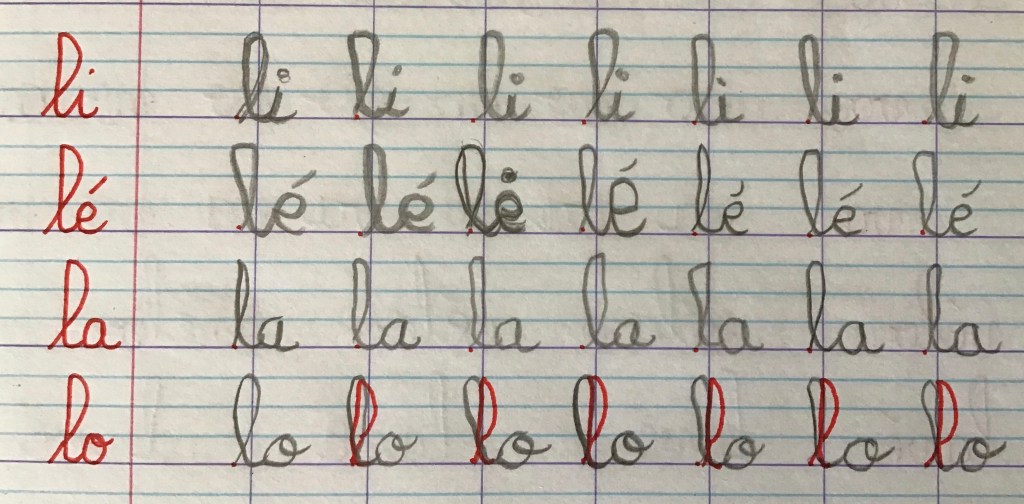 li li li li li li li li
lé lé lé lé lé lé lé lé
la la la la la la la la
lo lo lo lo lo lo lo lo